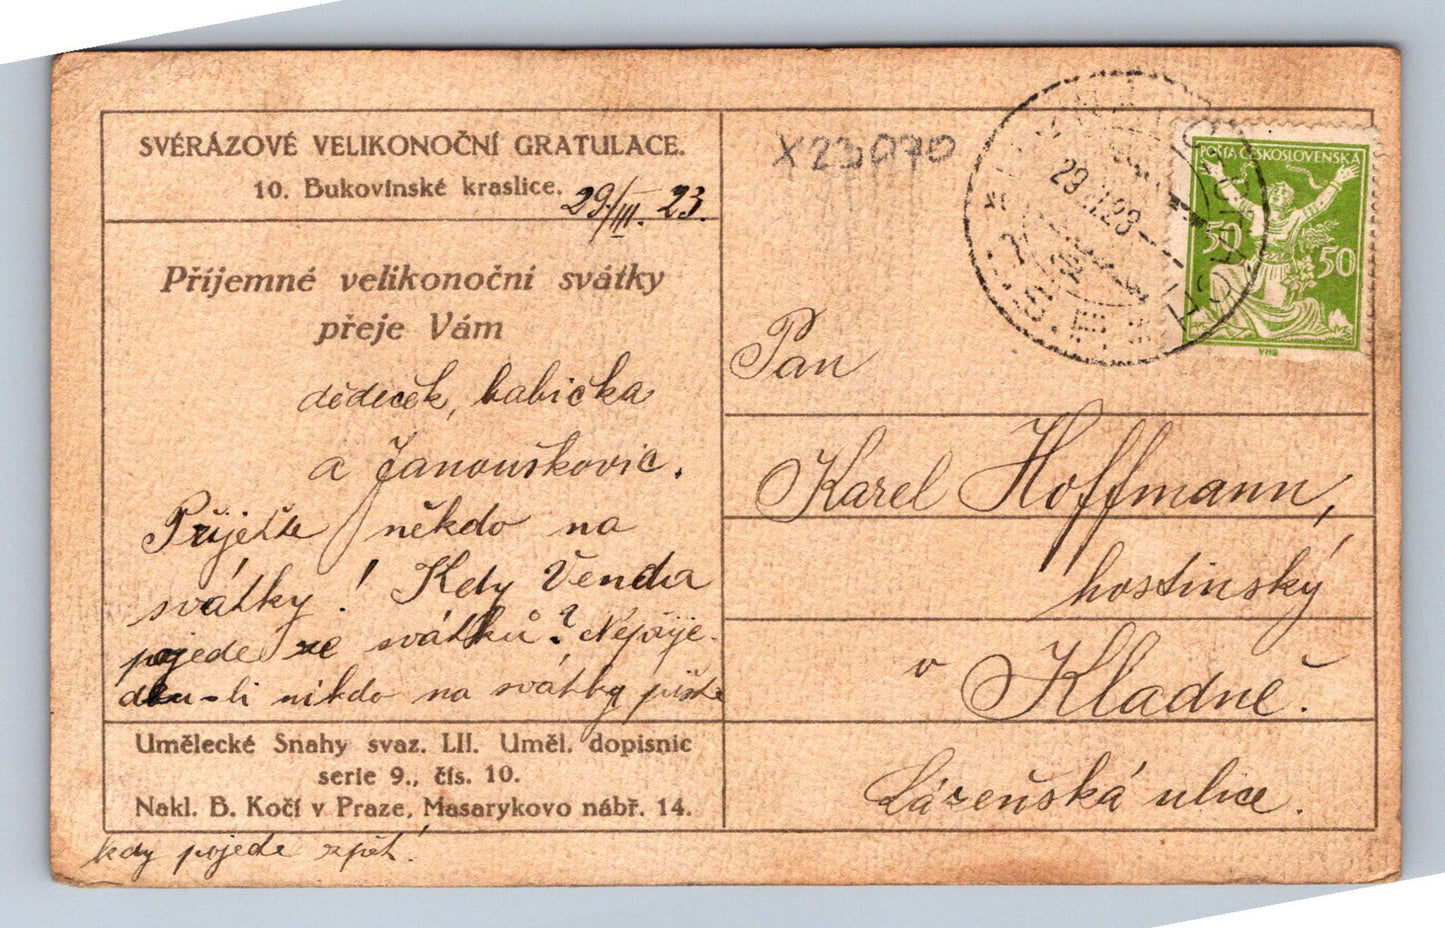 SVÉRÁZOVÉ VELIKONOČNÍ GRATULACE.
10. Bukovinské kraslice.
29/III. 23.
Příjemné velikonoční svátky
přeje Vám
dědeček, babička
a Janouškovic.
Přijeďte někdo na
svátky! Kdy Venda
pojede ze svátků? Nepřije-
dou-li nikdo na svátky pište
Umělecké Snahy svaz. LII. Uměl. dopisnic
serie 9., čís. 10.
Nakl. B. Kočí v Praze, Masarykovo nábř. 14.
kdy pojede zpět.
X23070
29.III.23
POŠTA ČESKOSLOVENSKÁ
50 50
Pan
Karel Hoffmann,
hostinský
v Kladně.
Lázeňská ulice.